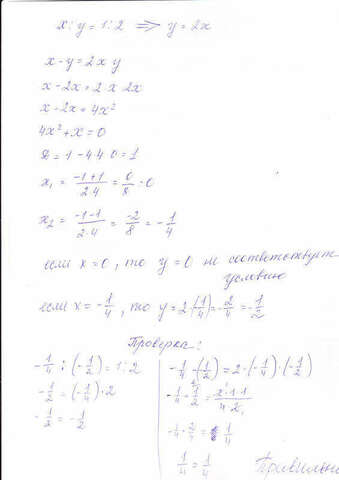 x : y = 1 : 2 ⇒ y = 2x
x - y = 2 x y
x - 2x = 2·x·2x
x - 2x = 4x²
4x² + x = 0
D = 1 - 4·4·0 = 1
x₁ = (-1+1)/(2·4) = 0/8 = 0
x₂ = (-1-1)/(2·4) = -2/8 = -1/4
если x = 0, то y = 0 не соответствует
условию
если x = -1/4, то y = 2·(-1/4) = -2/4 = -1/2
Проверка:
-1/4 : (-1/2) = 1 : 2
-1/2 = (-1/4)·2
-1/2 = -1/2
-1/4 - (-1/2) = 2·(-1/4)·(-1/2)